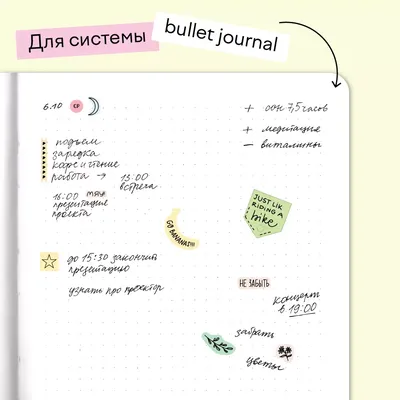 Для системы
bullet journal
6.10 СР
+ сон 7,5 часов
+ медитация
- витамины
подъем
зарядка
кофе и чтение
работа → 13:00
встреча
16:00
презентация
проекта
JUST LIK
RIDING A
bike
GO BANANAS!!!
до 15:30 закончить
презентацию
узнать про проектор
НЕ ЗАБЫТЬ
концерт
в 19:00
забрать
цветы